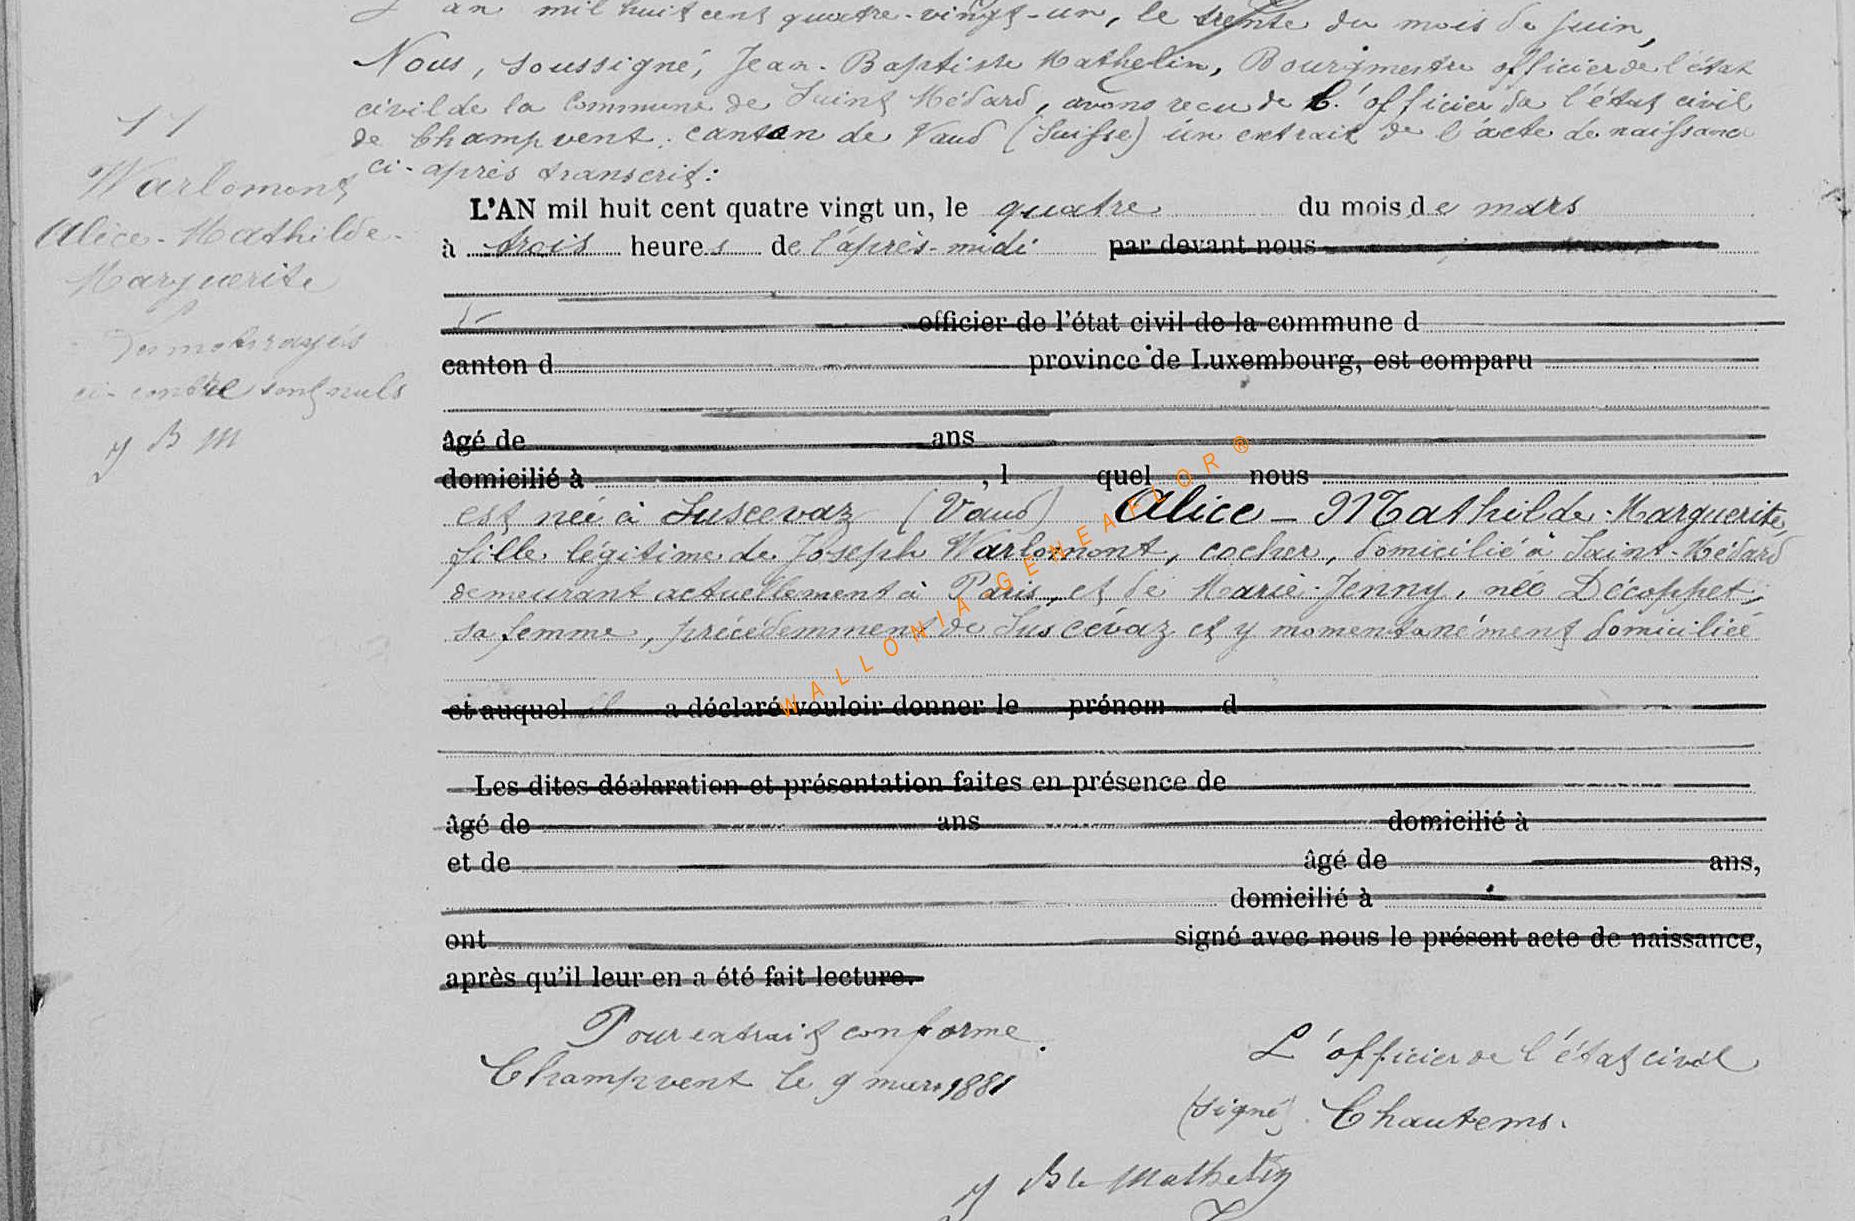 L'an mil huit cent quatre-vingt-un, le trente du mois de juin,
Nous, soussigné, Jean-Baptiste Mathelin, Bourgmestre officier de l'état
civil de la Commune de Saint Médard, avons reçu de l'officier de l'état civil
de Champvent, canton de Vaud (Suisse) un extrait de l'acte de naissance
ci-après transcrit:
11
Warlomont
Alice-Mathilde-
Marguerite
mots rayés
ci-contre sont nuls
J B M
L'AN mil huit cent quatre vingt un, le quatre du mois de mars
à trois heures de l'après-midi par devant nous
officier de l'état civil de la commune d
canton d province de Luxembourg, est comparu
âgé de ans
domicilié à , l quel nous
est née à Suscevaz (Vaud) Alice-Mathilde-Marguerite,
fille légitime de Joseph Warlomont, cocher, domicilié à Saint-Médard
demeurant actuellement à Paris, et de Marie-Jenny, née Décoppet,
sa femme, précédemment de Suscévaz et y momentanément domiciliée
et auquel il a déclaré vouloir donner le prénom d
Les dites déclaration et présentation faites en présence de
âgé de ans domicilié à
et de âgé de ans,
domicilié à
ont signé avec nous le présent acte de naissance,
après qu'il leur en a été fait lecture.
Pour extrait conforme.
Champvent le 9 mars 1881
L'officier de l'état civil
(signé) Chautems.
J Bte Mathelin
WALLONIA GENEAFLOR ®